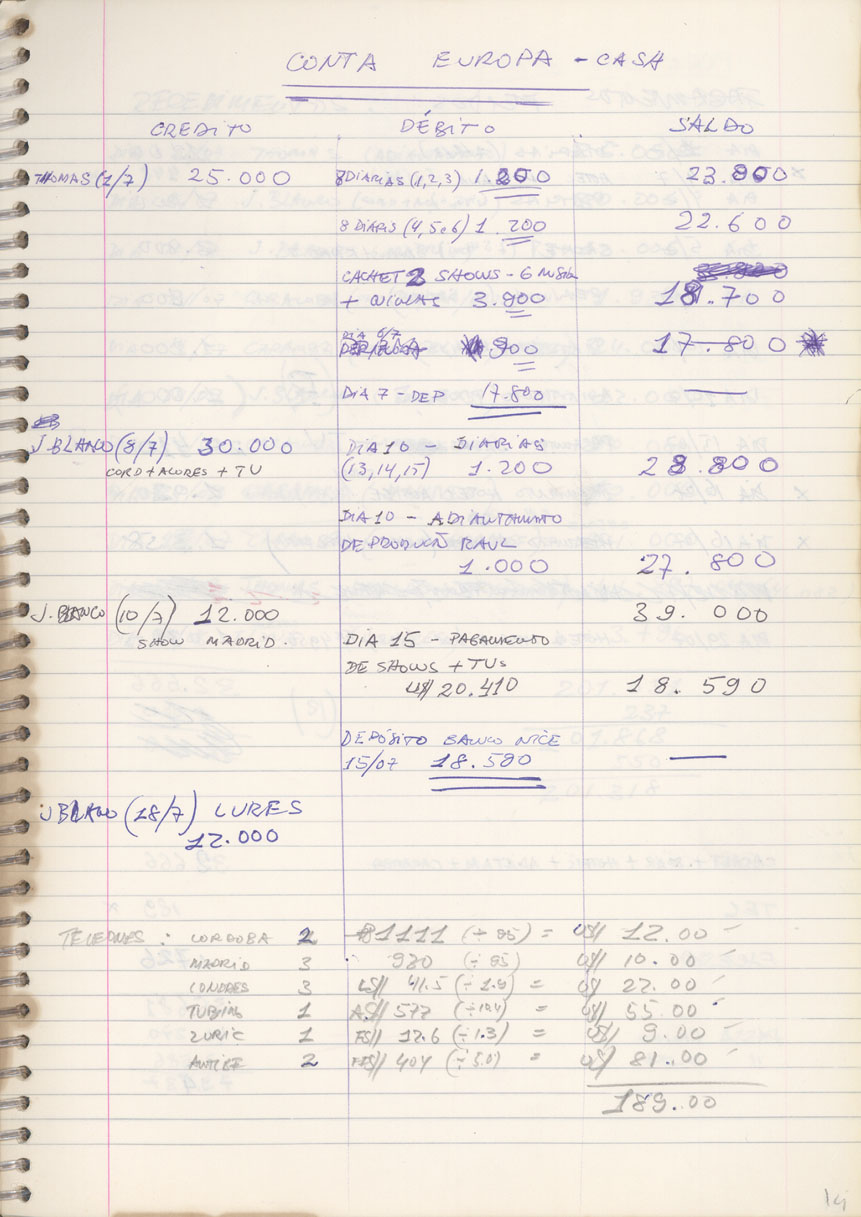 CONTA EUROPA - CASH
CREDITO DÉBITO SALDO
THOMAS (1/7) 25.000 8 DIARIAS (1,2,3) 1.200 23.800
8 DIARIS (4,5 e 6) 1.200 22.600
CACHET 2 SHOWS - 6
+ 3.900 18.700
DIA 6/7
900 17.800
DIA 7 - DEP 17.800 —
J BLANCO (8/7) 30.000 DIA 10 - DIARIAS
CORD + ACORES + TV (13,14,15) 1.200 28.800
DIA 10 - ADIANTAMENTO
DE PRODUÇÃO RAUL
1.000 27.800
J. BLANCO (10/7) 12.000 39.000
SHOW MADRID. DIA 15 - PAGAMENTO
DE SHOWS + TVs
US// 20.410 18.590
DEPÓSITO BANCO NICE
15/07 18.590 —
J BLANCO (18/7) LURES
12.000
TELEFONES: CORDOBA 2 1111 (÷ 95) = US// 12.00
MADRID 3 980 (÷ 95) US// 10.00
LONDRES 3 LS// 41.5 (÷ 1.9) = US// 22.00
1 AS// 577 (÷ 10.4) = US// 55.00
ZURIC 1 FS// 12.6 (÷ 1.3) = US// 9.00
2 FF// 404 (÷ 5.0) = US// 81.00
189.00
14